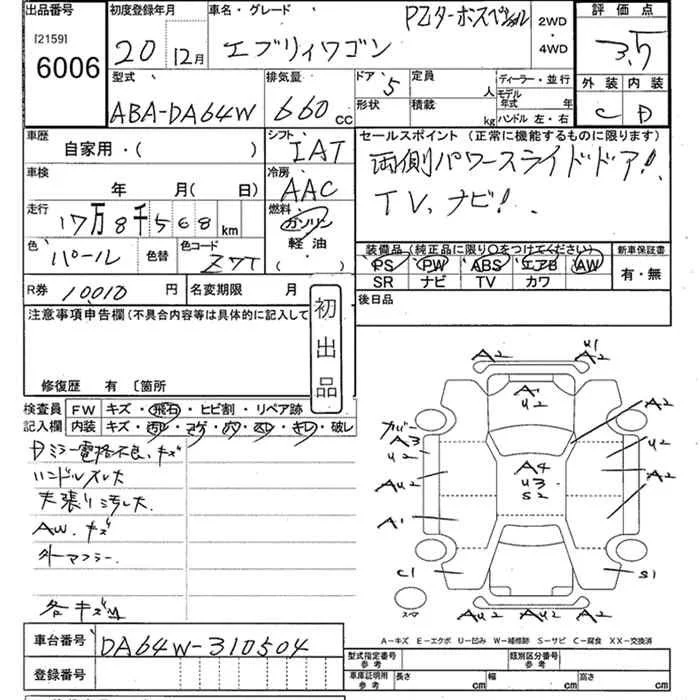 出品番号 初度登録年月 車名・グレード PZターボスペシャル 2WD・4WD 評価点
[2159]
6006 20年12月 エブリィワゴン 3.5
型式 排気量 ドア 5 定員 人 ディーラー・並行 外装 内装
ABA-DA64W 660cc 形状 積載 kg モデル年式 年 ハンドル 左・右 C D
車歴 自家用・( ) シフト IAT セールスポイント (正常に機能するものに限ります)
車検 年 月( 日) 冷房 AAC 両側パワースライドドア!
走行 17万8千568km 燃料 ガソリン TV,ナビ!
色 パール 色替 色コード Z7T 軽油 ( )
装備品 (純正品に限り○をつけてください) 新車保証書
PS PW ABS エアB AW 有・無
SR ナビ TV カワ
R券 10010円 名変期限 月 後日品
注意事項申告欄 (不具合内容等は具体的に記入して
初出品
修復歴 有 [箇所
検査員 FW キズ・飛石・ヒビ割・リペア跡
記入欄 内装 キズ・汚レ・コゲ・穴・スレ・キレ・破レ
Dミラー電格不良、キズ
ハンドルスレ大
天張り汚レ大
AW.キズ
外マフラー
各キズ凹
A2 U1 A2
A1 U2
カバー A3 U2
A2
U2
AU2 A4 U3 S2 A2
A1
C1 S1
スペア
AU2 AU2 A2
A-キズ E-エクボ U-凹み W-補修跡 S-サビ C-腐食 XX-交換済
車台番号 DA64W-310504
型式指定番号 参考 類別区分番号 参考
登録番号 車庫証明用 参考 長さ cm 幅 cm 高さ cm